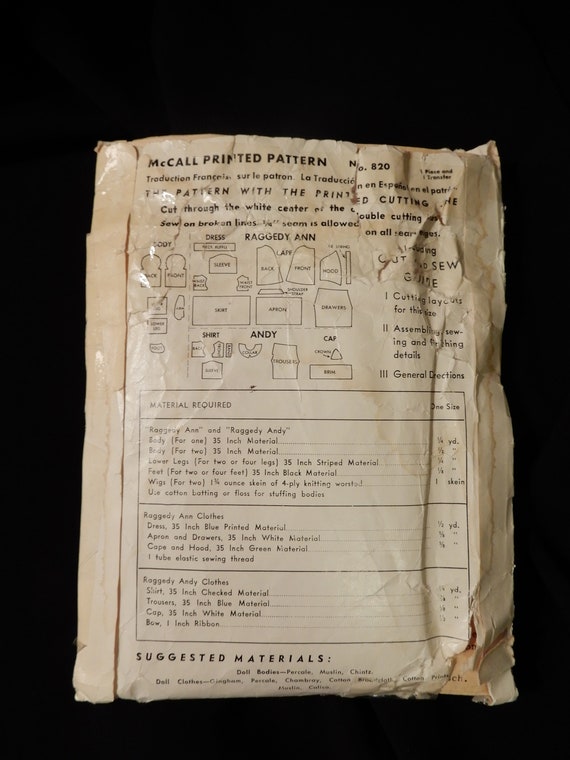 McCALL PRINTED PATTERN No. 820
Traduction Française sur le patron. La Traducción en Español en el
1 Piece and
1 Transfer
THE PATTERN WITH THE PRINTED CUTTING LINE
Cut through the white center of the double cutting
Sew on broken lines. seam is allowed on all seam edges.
RAGGEDY ANN
Including
CUT AND SEW
GUIDE
I Cutting layouts
for this size
II Assembling, sew-
ing and finishing
details
III General Directions
BODY
DRESS
CAPE
NECK RUFFLE
BACK
FRONT
SLEEVE
BACK
FRONT
HOOD
WAIST
BACK
WAIST
FRONT
SHOULDER
STRAP
LOWER
LEG
SKIRT
APRON
DRAWERS
FOOT
SHIRT
ANDY
CAP
BACK
COLLAR
CROWN
SLEEVE
TROUSERS
BRIM
MATERIAL REQUIRED One Size
Raggedy Ann" and "Raggedy Andy"
Body (For one) 35 Inch Material ¼ yd.
Body (For two) 35 Inch Material "
Lower Legs (For two or four legs) 35 Inch Striped Material "
Feet (For two or four feet) 35 Inch Black Material "
Wigs (For two) 1¾ ounce skein of 4-ply knitting worsted 1 skein
Use cotton batting or floss for stuffing bodies
Raggedy Ann Clothes
Dress, 35 Inch Blue Printed Material ½ yd.
Apron and Drawers, 35 Inch White Material "
Cape and Hood, 35 Inch Green Material "
1 tube elastic sewing thread
Raggedy Andy Clothes
Shirt, 35 Inch Checked Material yd.
Trousers, 35 Inch Blue Material "
Cap, 35 Inch White Material "
Bow, 1 Inch Ribbon "
SUGGESTED MATERIALS:
Doll Bodies—Percale, Muslin, Chintz.
Doll Clothes—Gingham, Percale, Chambray, Cotton Broadcloth, Cotton Prints,
Muslin, Calico.